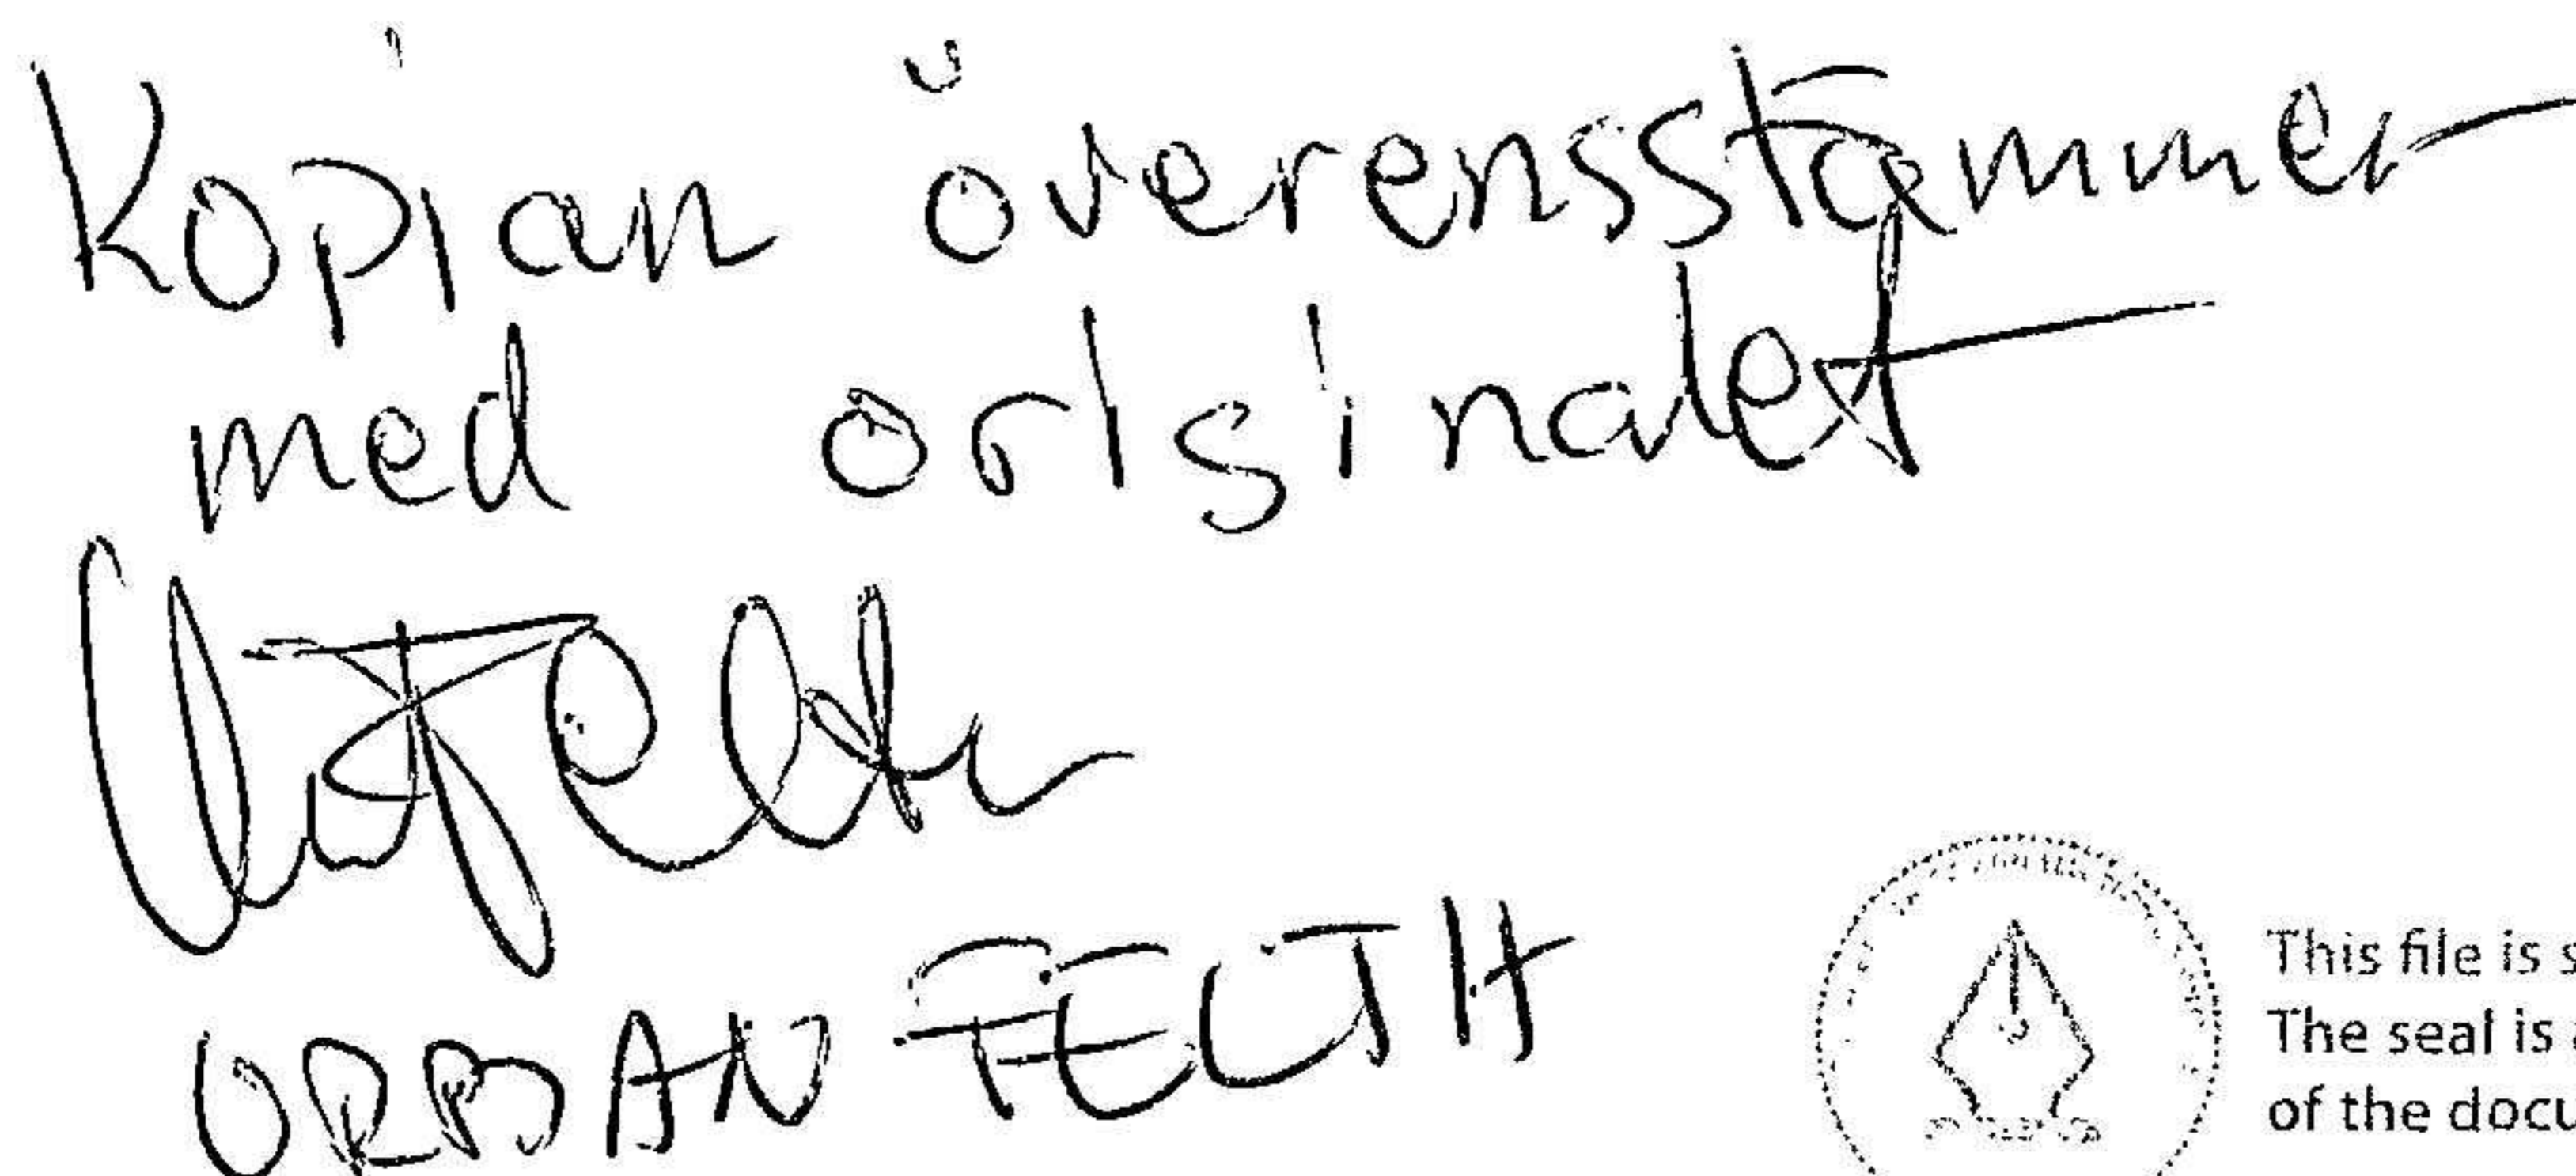 Kopian överensstämmer
med originalet
URBAN FELTH
This file is s
The seal is
of the docu